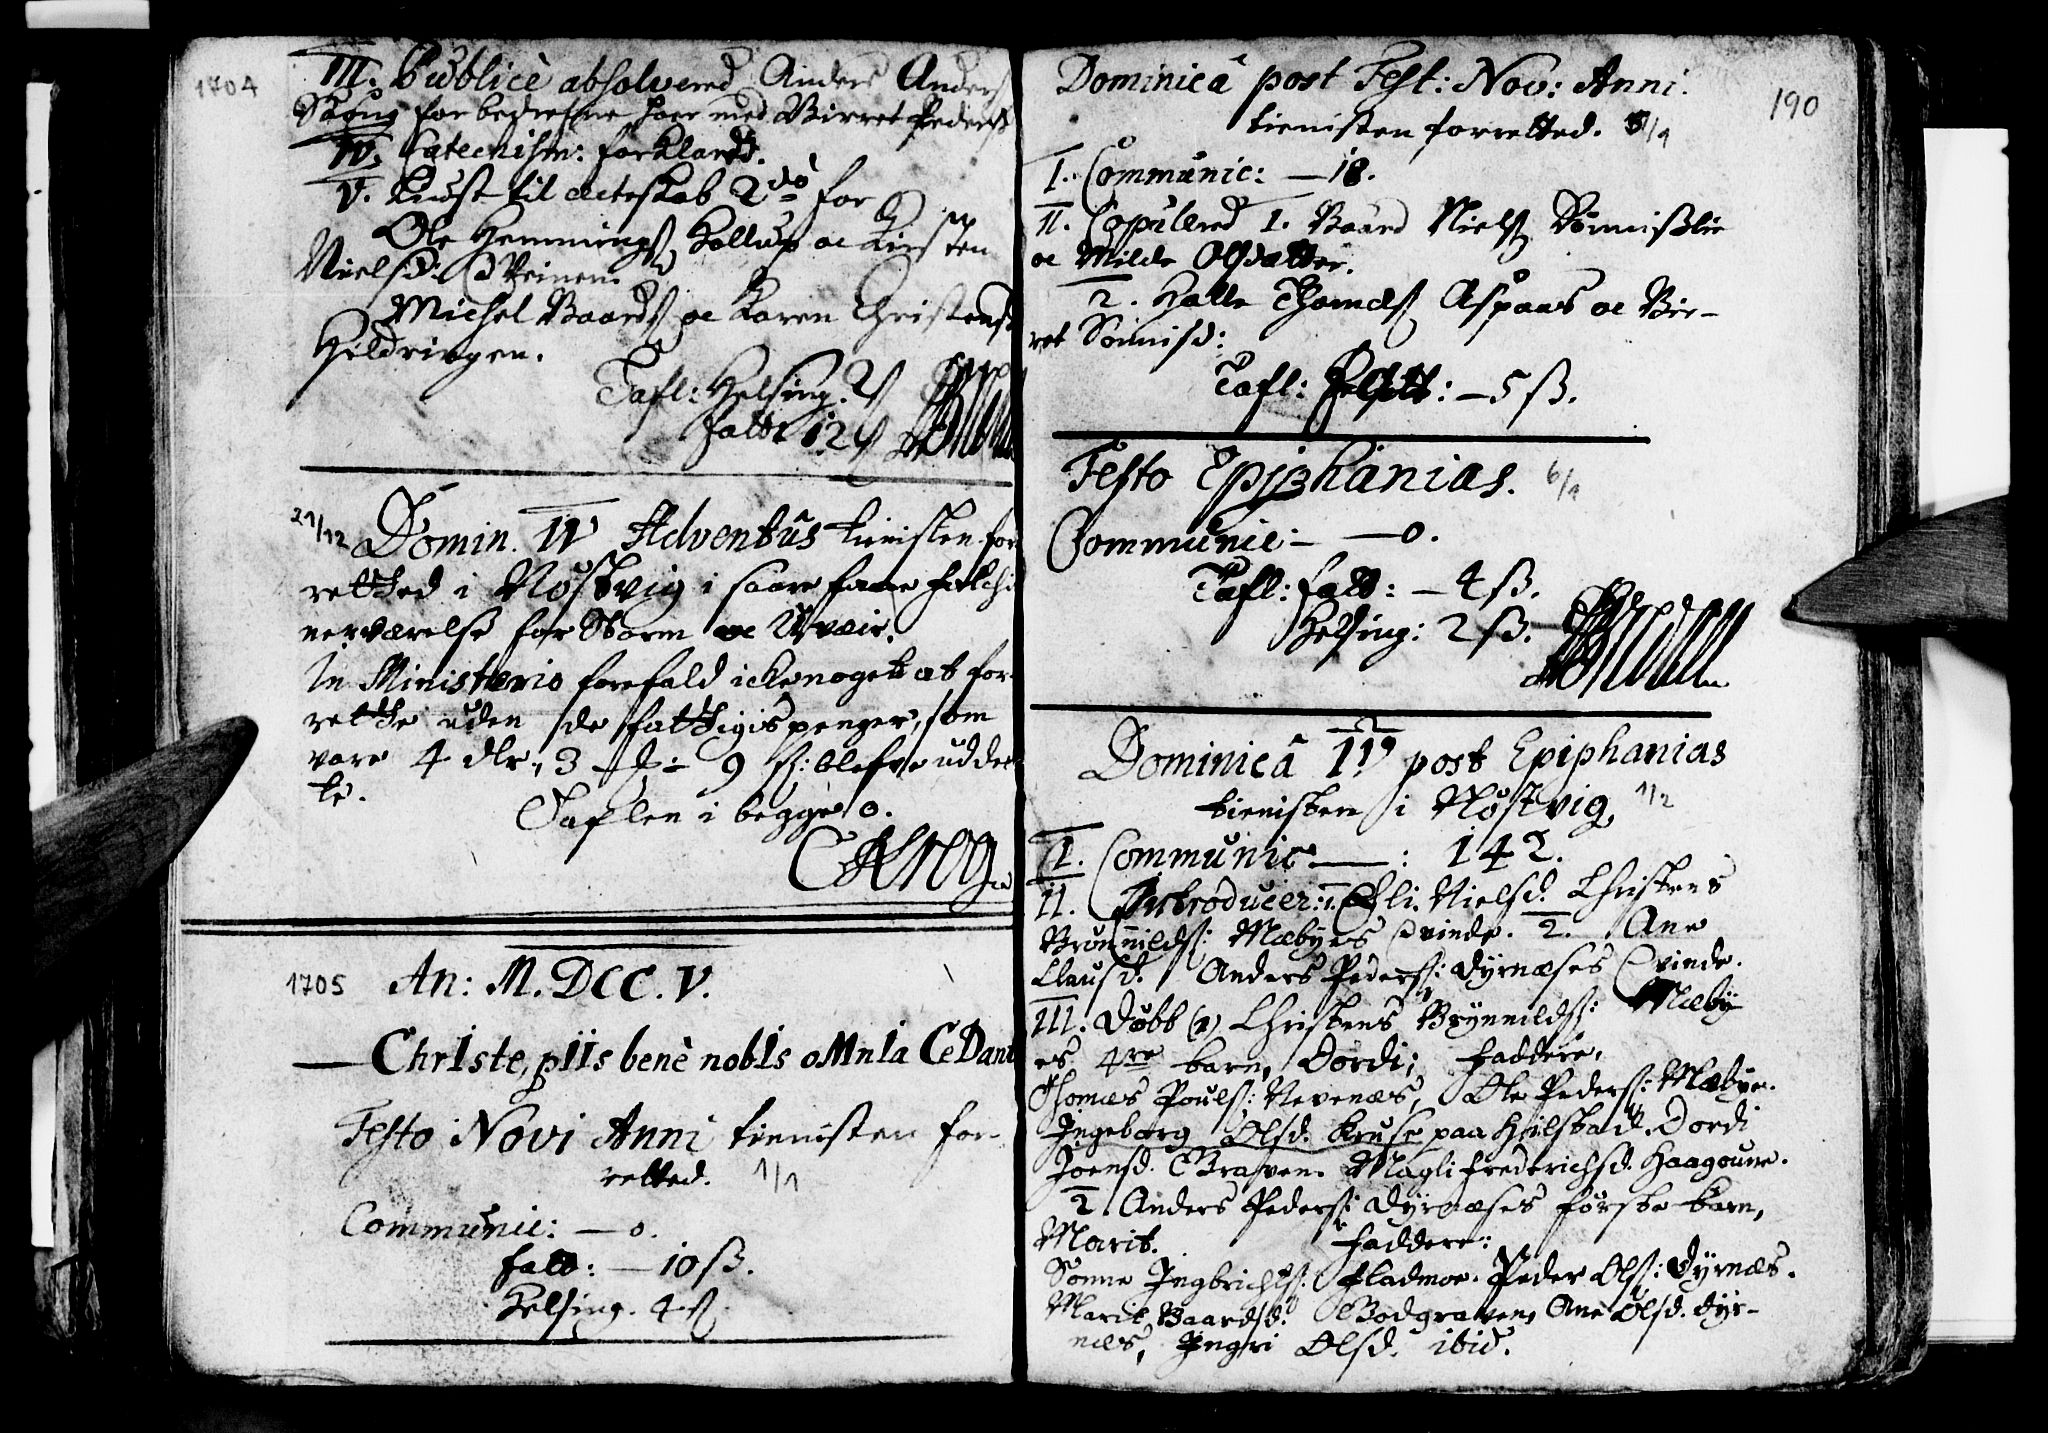 1704
III. Publicè absolvered Anders Anders
Skong for bedrefne hoer med Birret Peders
IV. Catechism: forklaret.
V. liust til ecteskab 2do for
Ole Hemmings Hollup oc Kirsten
Nielsd:
Michel Baards oc Karen Christens
Hildringen.
Tafl: Helsing. 2 ß
fatt: 12 ß
21/12 Domin. IV Adventûs tienisten for
retted i Nöstvig i saare faae folchis
nerværelse for Storm oc Uvæir.
In Ministerio forefald icke noget at for-
rette uden de fattigis penger, som
vare 4 dlr. 3 9 ß: blefve uddee
te.
Taflen i begge 0.
1705 An: M.DCC.V.
Christe, pIIs benè nobIs oMnIa CeDant
Festo Novi Anni tienisten for-
retted. 1/1
Communic: — 0.
fatt: — 10 ß.
Helsing. 4 ß
190
Dominicâ post Fest: Nov: Anni.
tienisten forretted. /1
I. Communic: — 18.
II. Copulered 1. Baard Niels
oc Milde Olsdatter.
2. Halle Thomæs Aspaas oc Bir-
ret Sönnisd:
Tafl: — 5 ß.
Festo Epiphanias. 6/1
Communic: — 0.
Tafl: fatt: — 4 ß.
Helsing: 2 ß.
Dominicâ IV post Epiphanias
tienisten i Nöstvig 1/2
I. Communic — : 142.
II. Introducer: 1. Eli. Nielsd. Christens
Brönnilds: Mæbyes qvinde. 2. Ane
Clausd. Anders Peders: Dyrnæses Qvinde.
III. Döbb (1) Christens Brynnilds: Mæby
es 4re barn, Dordi; Faddere,
Thomæs Pouls: Nevenæs, Ole Peders: Mæbye.
Ingeborg Olsd. Kruse paa Hiilstad. Dordi
Joensd. Graven. Magli Frederichsd. Haagoune.
2 Anders Peders: Dyrnæses förste barn,
Marit. Faddere:
Sönne Ingbrichts: Fladmoe. Peder Ols: Dyrnæs.
Marit Baardsd. Bodgraven, Ane Olsd. Dyr-
næs, Ingri Olsd. ibid.